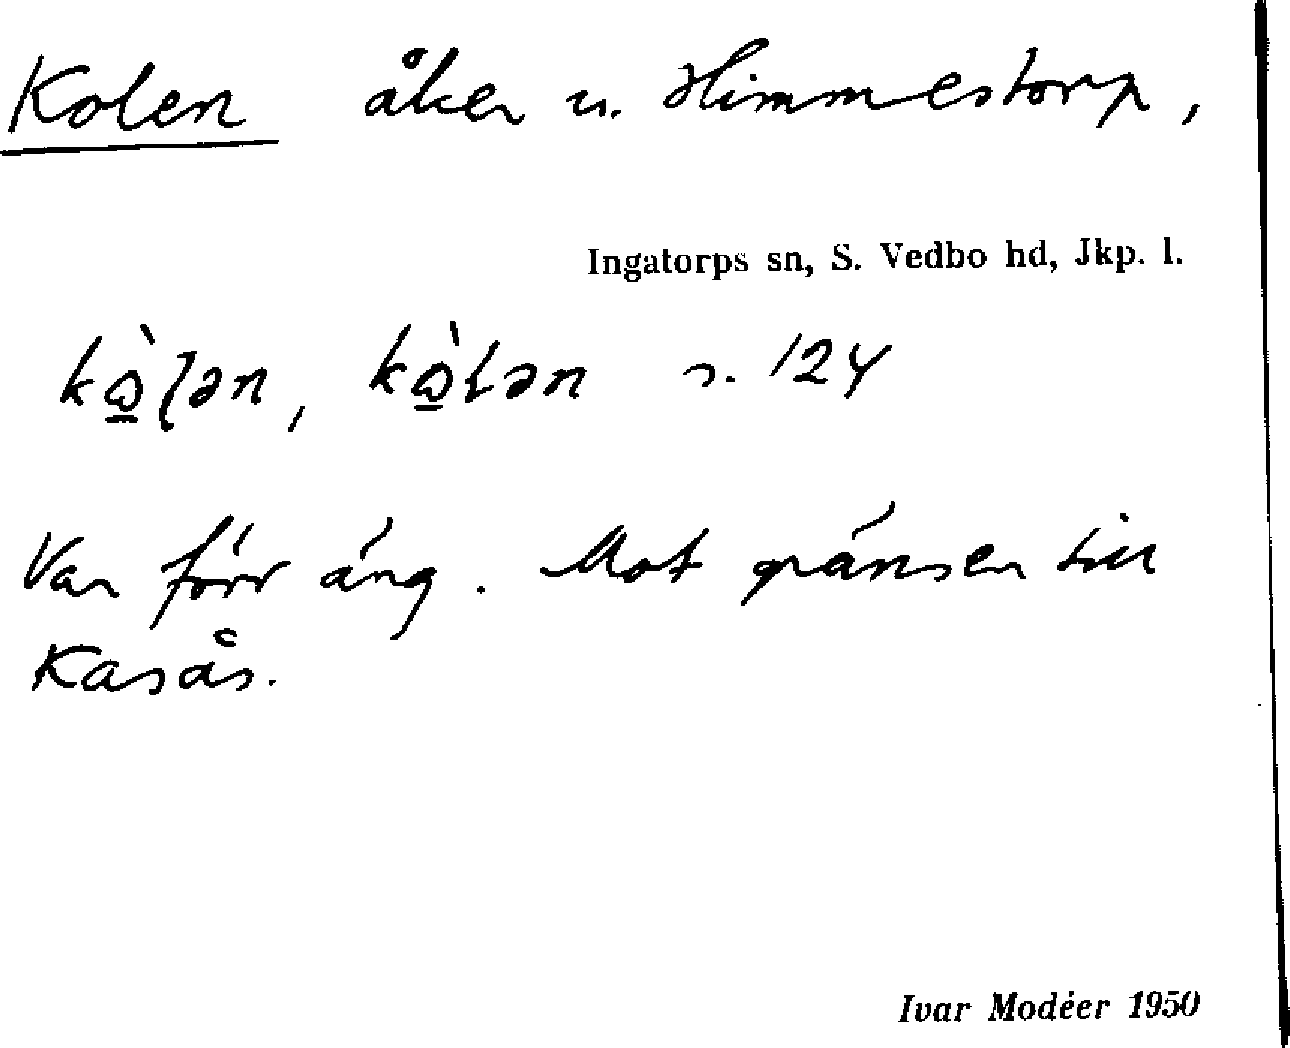 Kolen åker u. Himmestorp,
Ingatorps sn, S. Vedbo hd, Jkp. l.
s. 124
Var förr äng. Mot gränsen till
Kasås.
Ivar Modéer 1950